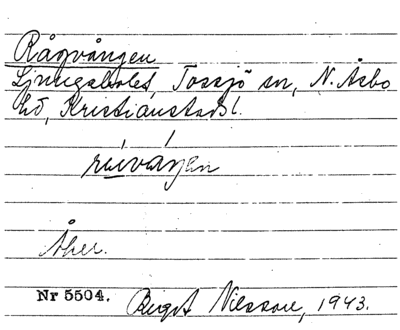 Rågvången
Ljungaholet, Tossjö sn, N. Åsbo
hd, Kristianstads l.
Åker.
Nr 5504. Birgit Nilsson, 1943.